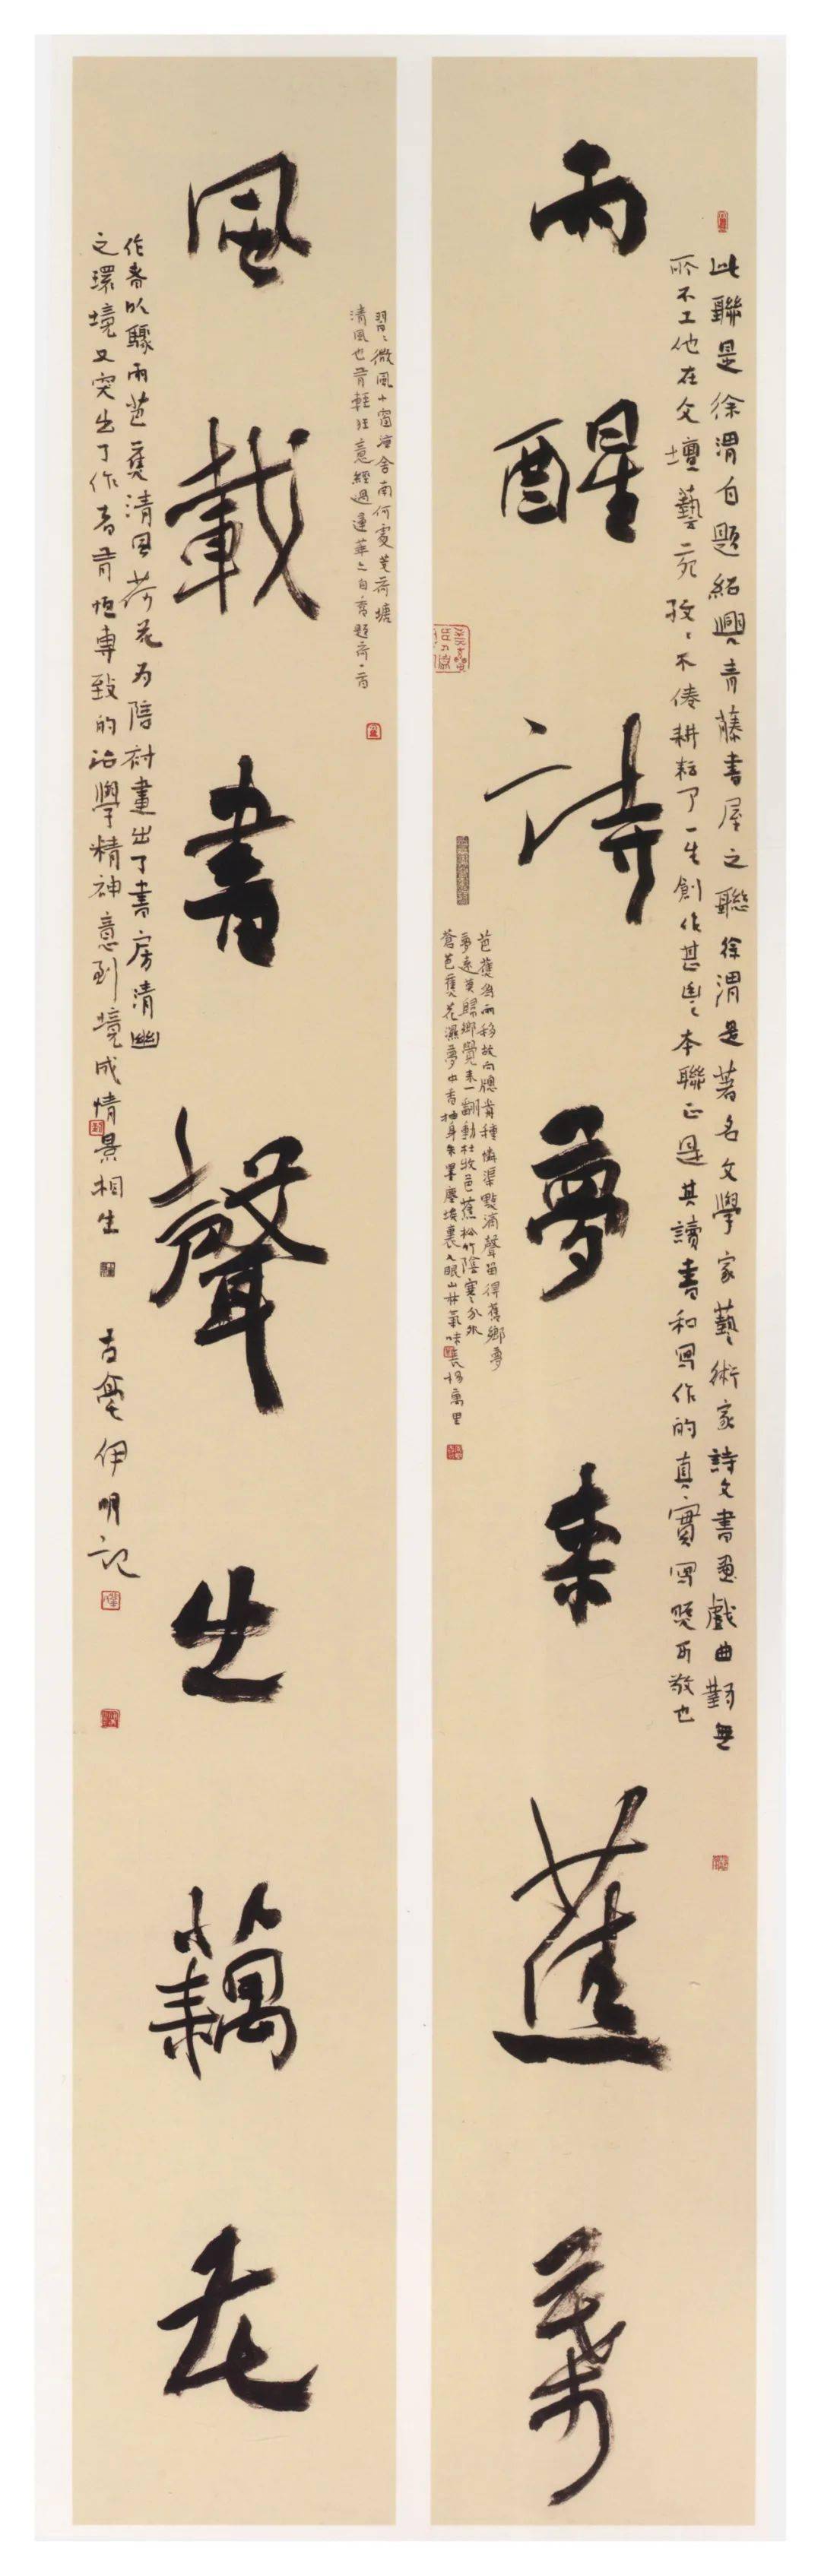 雨醒詩夢來蕉葉
此聯是徐渭自題紹興青藤書屋之聯徐渭是著名文學家藝術家詩文書畫戲曲對無
所不工他在文壇藝苑孜孜不倦耕耘了一生創作甚豐本聯正是其讀書和寫作的真實寫照可敬也
芭蕉為雨移故向牕前種憐渠點滴聲留得舊鄉夢
夢遠莫歸鄉覺來一翻動杜牧芭蕉松竹陰寒分外
蒼芭蕉花濕夢中香抽身朱墨塵埃裏入眼山林氣味長楊萬里
風載書聲出藕花
習習微風小窗
清風也有輕狂意經過蓮華
作者以驟雨芭蕉清風荷花為陪襯畫出了書房清幽
之環境又突出了作者有恒專致的治學精神意到境成情景相生
伊明記